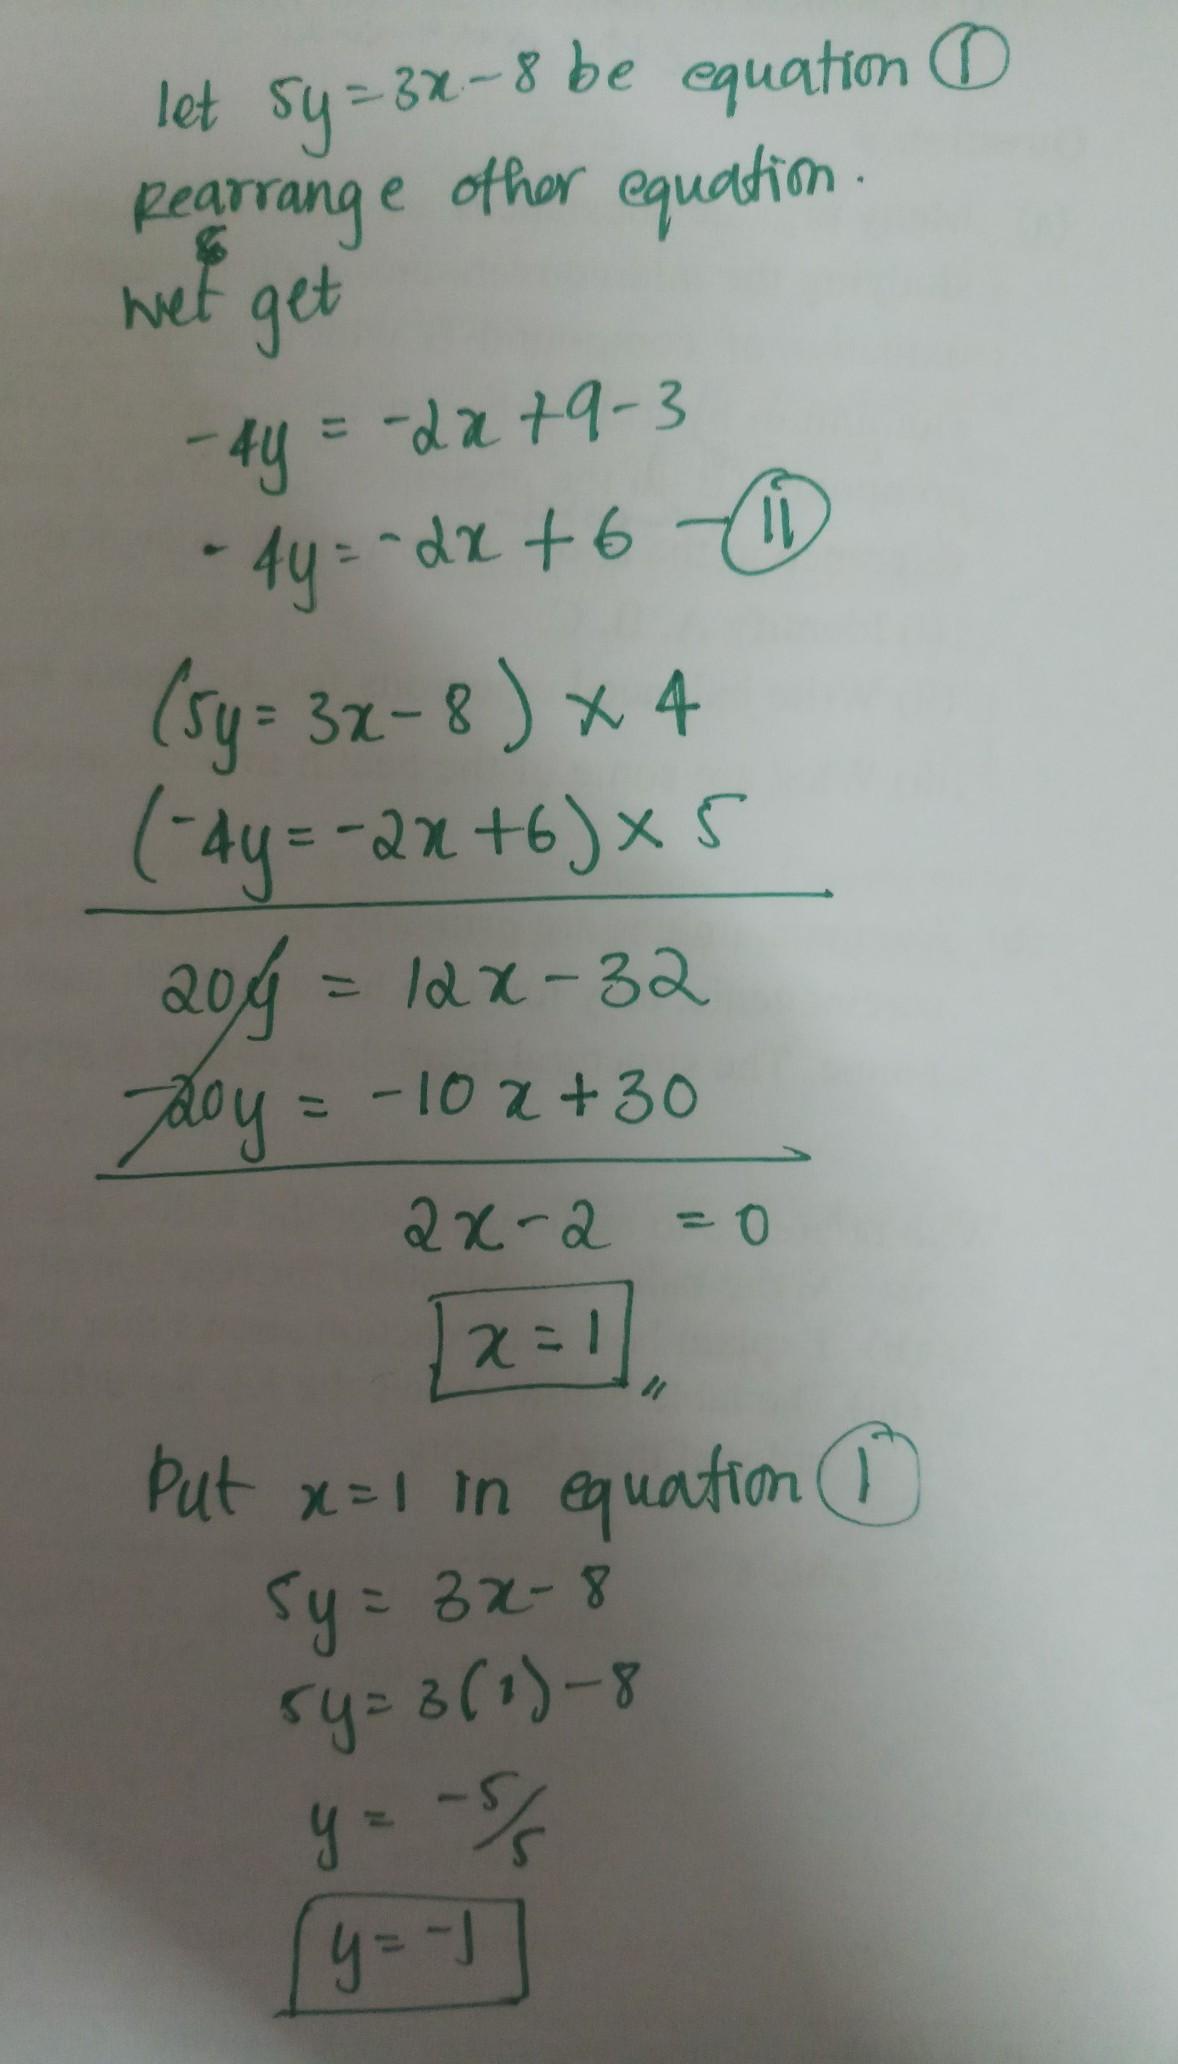 let 5y=3x-8 be equation I
Rearrange other equation.
we get
-4y = -2x +9-3
-4y=-2x +6 - II
(5y= 3x-8) x 4
(-4y=-2x+6) x 5
20y = 12x-32
-20y = -10x+30
2x-2 =0
x=1 "
Put x=1 in equation I
5y= 3x-8
5y=3(1)-8
y= -5/5
y=-1